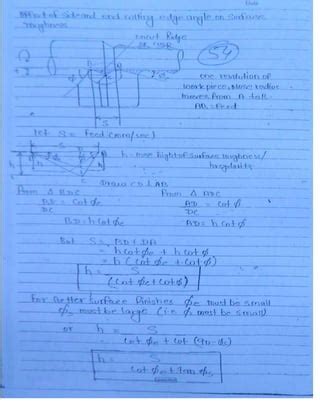 Effect of side and end cutting edge angle on surface
roughness
54
one revolution of
work piece, nose radius
moves from A to B.
AB = Feed
Let S = Feed (mm/rev)
S
h = max hight of surface roughness/
Draw CD ⊥ AB
From Δ BDC
From Δ ADC
BD/DC = cot φe
AD/DC = cot φ
BD = h cot φe
AD = h cot φ
But S = BD + DA
= h cot φe + h cot φ
= h (cot φe + cot φ)
h = S/(cot φe + cot φ)
For better surface finishes φe must be small
φs must be large (i.e φ must be small)
or h = S/
cot φe + cot (90-φs)
h = S/
cot φe + tan φs